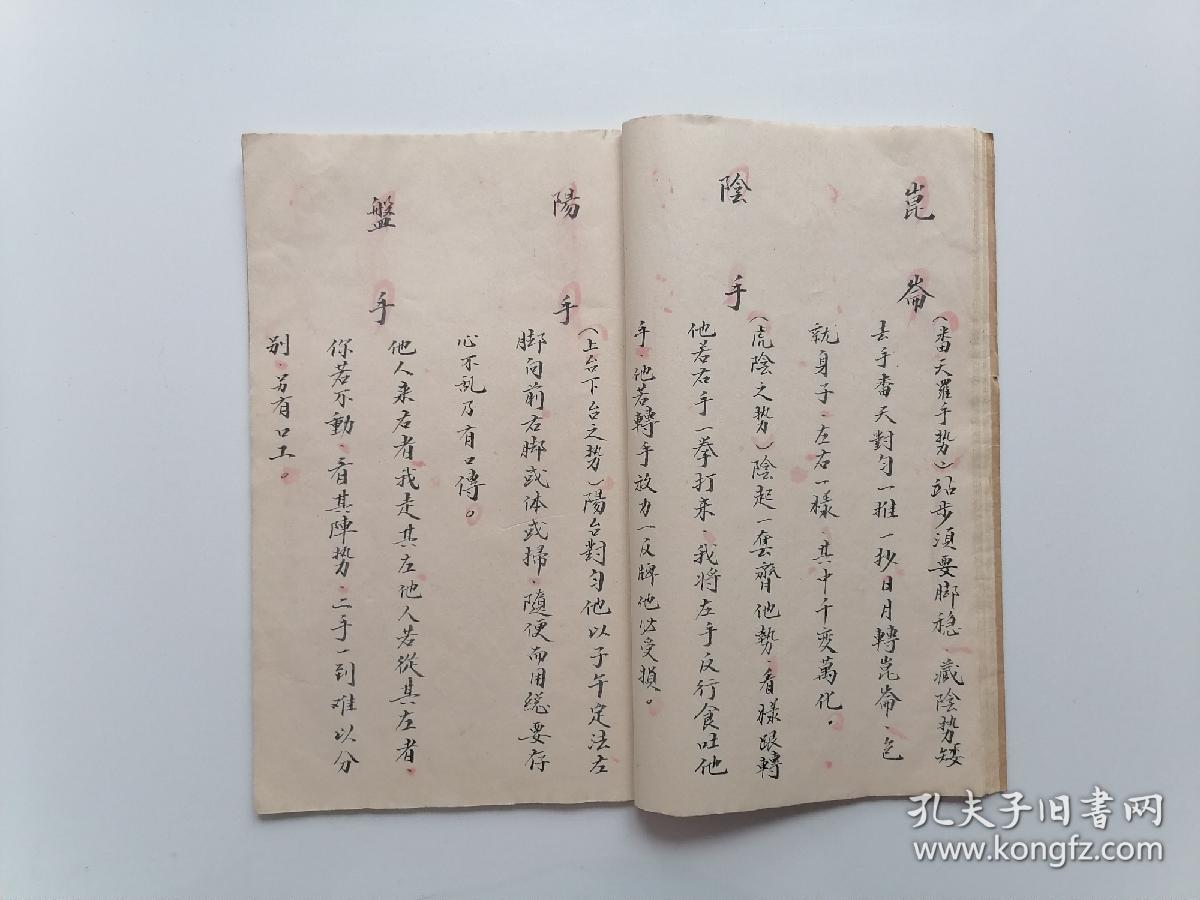 崑崙(番天羅手势)站步須要脚稳、藏陰势矮
去手番天對勻一推一抄日月轉崑崙、包
就身子、左右一樣、其中千変萬化。
陰手(虎陰之势)陰起一套齊他勢、看樣跟轉
他若右手一拳打来、我将左手反行食吐他
手、他若轉手放力一反牌他必受損。
陽手(上台下台之势)陽台對勻他以子午定法左
脚向前右脚或体或掃、隨便而用縂要存
心不乱乃有口傳。
盤手他人来右者我走其左他人若從其左者、
你若不動、看其陣势、二手一到难以分
别、另有口工。
孔夫子旧书网
www.kongfz.com